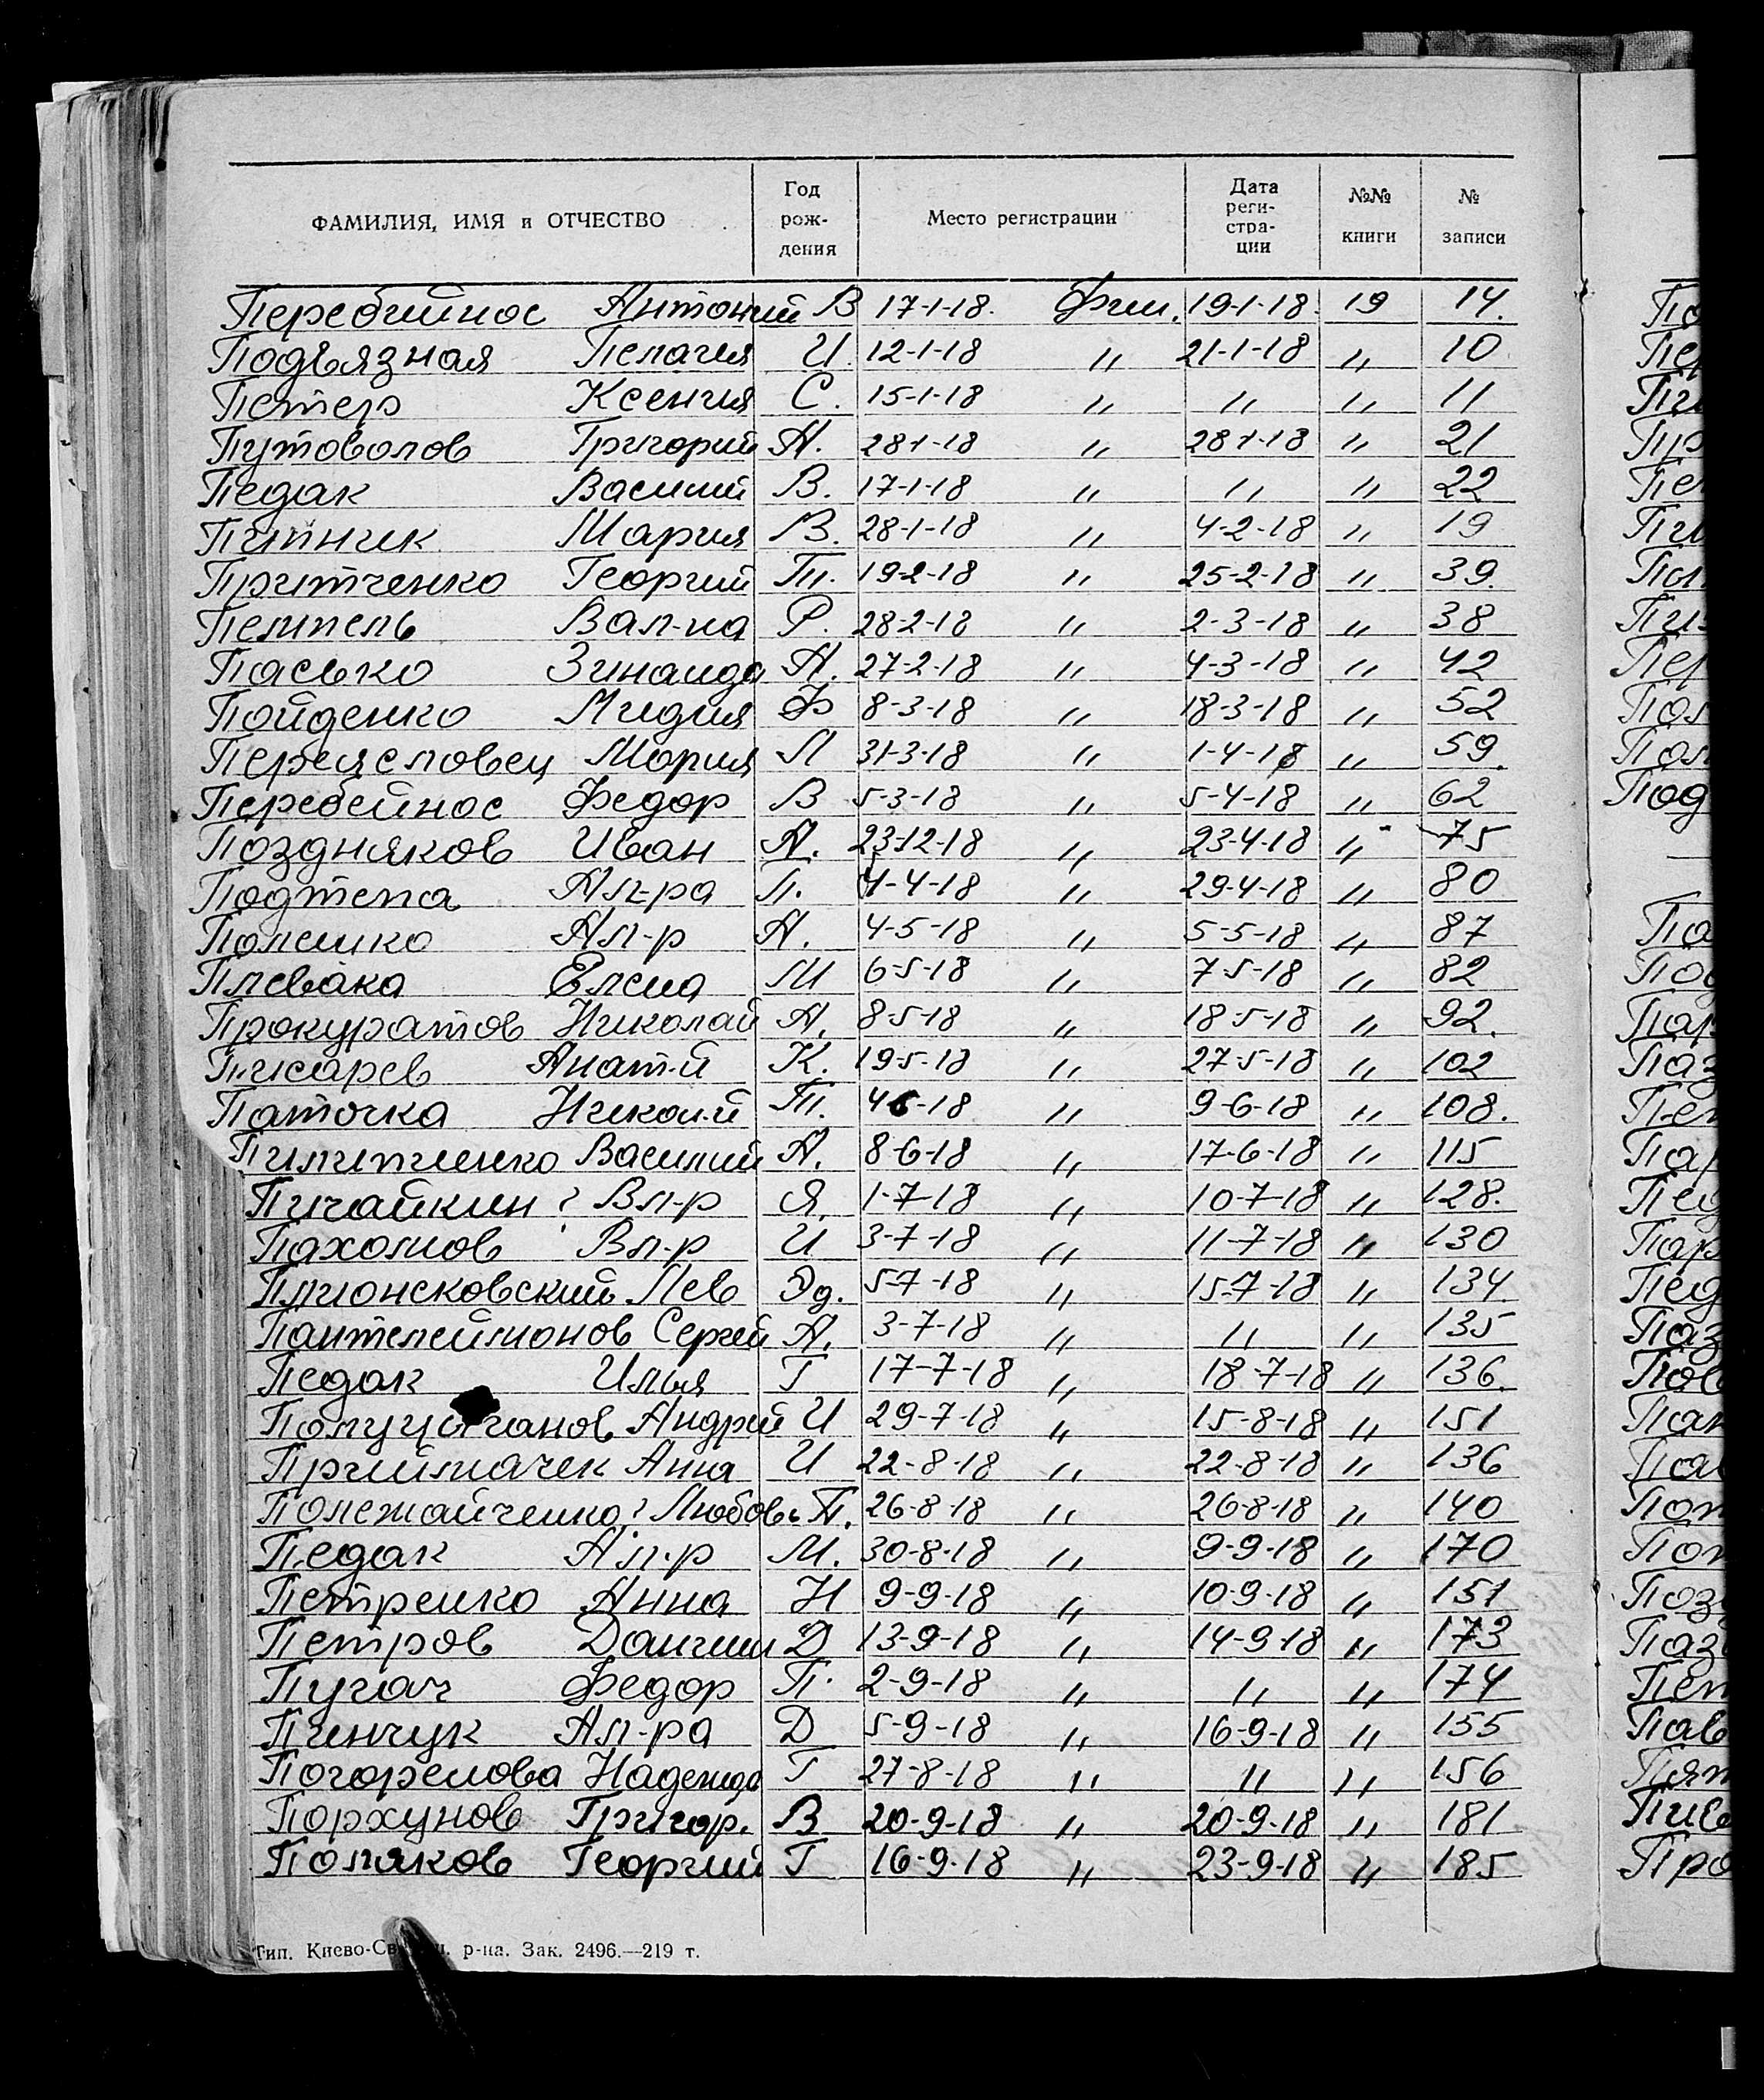 ФАМИЛИЯ, ИМЯ и ОТЧЕСТВО Год рож- дения Место регистрации Дата реги- стра- ции №№ книги № записи
Перебийнос Антоний В 17-1-18. Фил. 19-1-18. 19 14.
Подвязная Пелагия И. 12-1-18 " 21-1-18 " 10
Петер Ксения С. 15-1-18 " " " 11
Путоволов Григорий А. 28-1-18 " 28-1-18 " 21
Педак Василий В. 17-1-18 " " " 22
Мария В. 28-1-18 " 4-2-18 " 19
Притченко Георгий Т. 19-2-18 " 25-2-18 " 39.
Пемпель Вал-на Р. 28-2-18 " 2-3-18 " 38
Пасько Зинаида А. 27-2-18 " 4-3-18 " 42
Пойденко Лидия Ф 8-3-18 " 18-3-18 " 52
Переясловец Мария Л 31-3-18 " 1-4-18 " 59.
Перебейнос Федор В 5-3-18 " 5-4-18 " 62
Поздняков Иван А. 23-12-18 " 23-4-18 " 75
Подтепа Ал-ра П. 4-4-18 " 29-4-18 " 80
Полешко Ал-р А. 4-5-18 " 5-5-18 " 87
Плевака Елена М 6-5-18 " 7-5-18 " 82
Прокуратов Николай А. 8-5-18 " 18-5-18 " 92.
Писарев Анат-й К. 19-5-18 " 27-5-18 " 102
Паточка Никол-й Т. 4-6-18 " 9-6-18 " 108.
Пилипченко Василий А. 8-6-18 " 17-6-18 " 115
Пичайкин ? Вл-р Я. 1-7-18 " 10-7-18 " 128.
Пахомов Вл-р И 3-7-18 " 11-7-18 " 130
Плюнсковский Лев Эд. 5-7-18 " 15-7-18 " 134
Пантелеймонов Сергей А. 3-7-18 " " " 135
Педак Илья Г 17-7-18 " 18-7-18 " 136.
Андрей И 29-7-18 " 15-8-18 " 151
Приймачек Анна И 22-8-18 " 22-8-18 " 136
Полежайченко? Любовь П. 26-8-18 " 26-8-18 " 140
Педак Ал-р М. 30-8-18 " 9-9-18 " 170
Петренко Анна Н 9-9-18 " 10-9-18 " 151
Петров Даниил Д 13-9-18 " 14-9-18 " 173
Пугач Федор П. 2-9-18 " " " 174
Пинчук Ал-ра Д 5-9-18 " 16-9-18 " 155
Погорелова Надежда Г 27-8-18 " " " 156
Порхунов Григор. В 20-9-18 " 20-9-18 " 181
Поляков Георгий Г 16-9-18 " 23-9-18 " 185
Тип. р-на. Зак. 2496.—219 т.